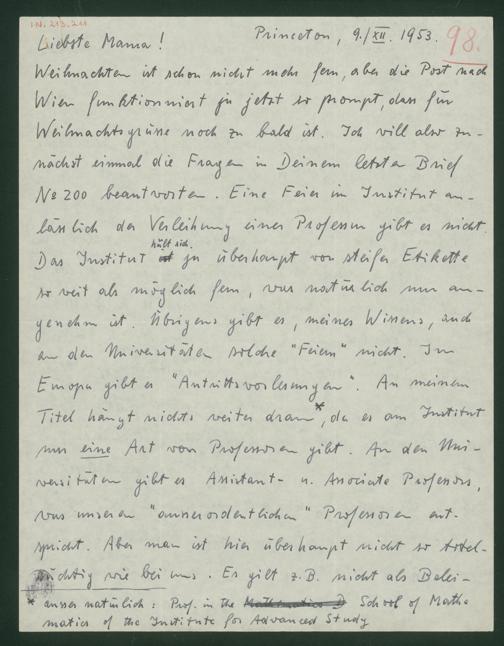 I.N. 213.211
Liebste Mama! Princeton, 9./XII. 1953. 98.
Weihnachten ist schon nicht mehr fern, aber die Post nach
Wien funktioniert ja jetzt so prompt, dass für
Weihnachtsgrüsse noch zu bald ist. Ich will also zu-
nächst einmal die Fragen in Deinem letzten Brief
No 200 beantworten. Eine Feier im Institut an-
lässlich der Verleihung einer Professur gibt es nicht.
hält sich
Das Institut ist ja überhaupt von steifer Etikette
so weit als möglich fern, was natürlich nur an-
genehm ist. Übrigens gibt es, meines Wissens, auch
an den Universitäten solche "Feiern" nicht. In
Europa gibt es "Antrittsvorlesungen". An meinem
Titel hängt nichts weiter dran*, da es am Institut
nur eine Art von Professoren gibt. An den Uni-
versitäten gibt es Assistant- u. Associate Professors,
was unseren "ausserordentlichen" Professoren ent-
spricht. Aber man ist hier überhaupt nicht so titel-
süchtig wie bei uns. Es gilt z.B. nicht als Belei-
* ausser natürlich: Prof. in the Mathematics D School of Mathe
matics of the Institute for Advanced Study